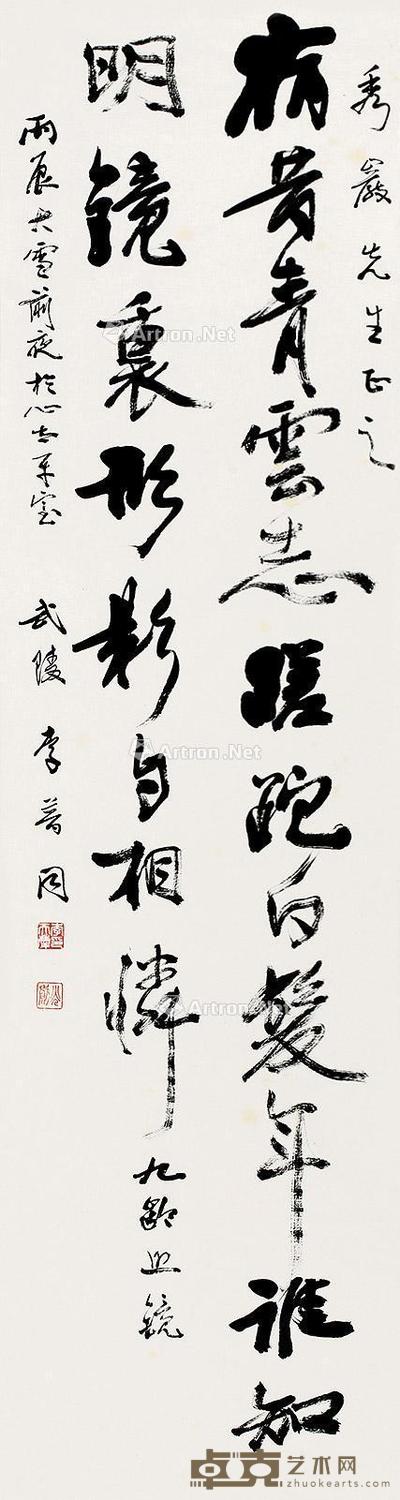 秀巖先生正之
宿昔青雲志蹉跎白髮年誰知
明鏡裏形影自相憐
九齡照鏡
丙辰大雪前夜於心太平室 武陵 李普同
Artron.Net
Artron.Net
Artron.Net
Artron.Net
Artron.Net
Artron.Net
卓克艺术网
zhuokearts.com